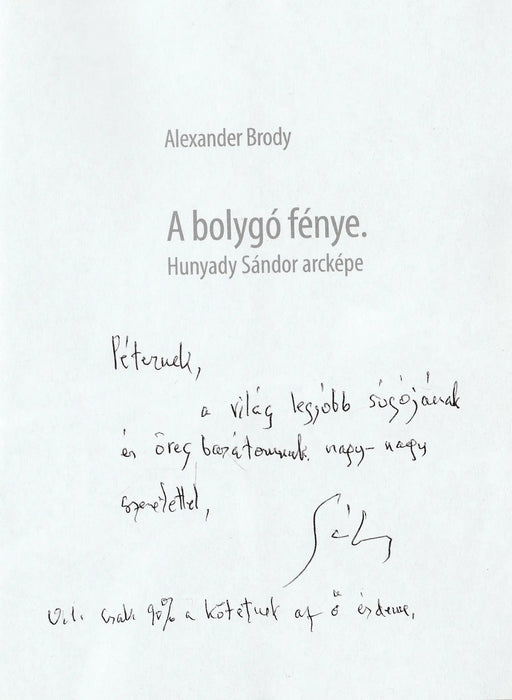 Alexander Brody
A bolygó fénye.
Hunyady Sándor arcképe
Péternek,
a világ legjobb súgójának
és öreg barátomnak nagy-nagy
szeretettel,
csak 90% a kötetnek az ő érdeme.